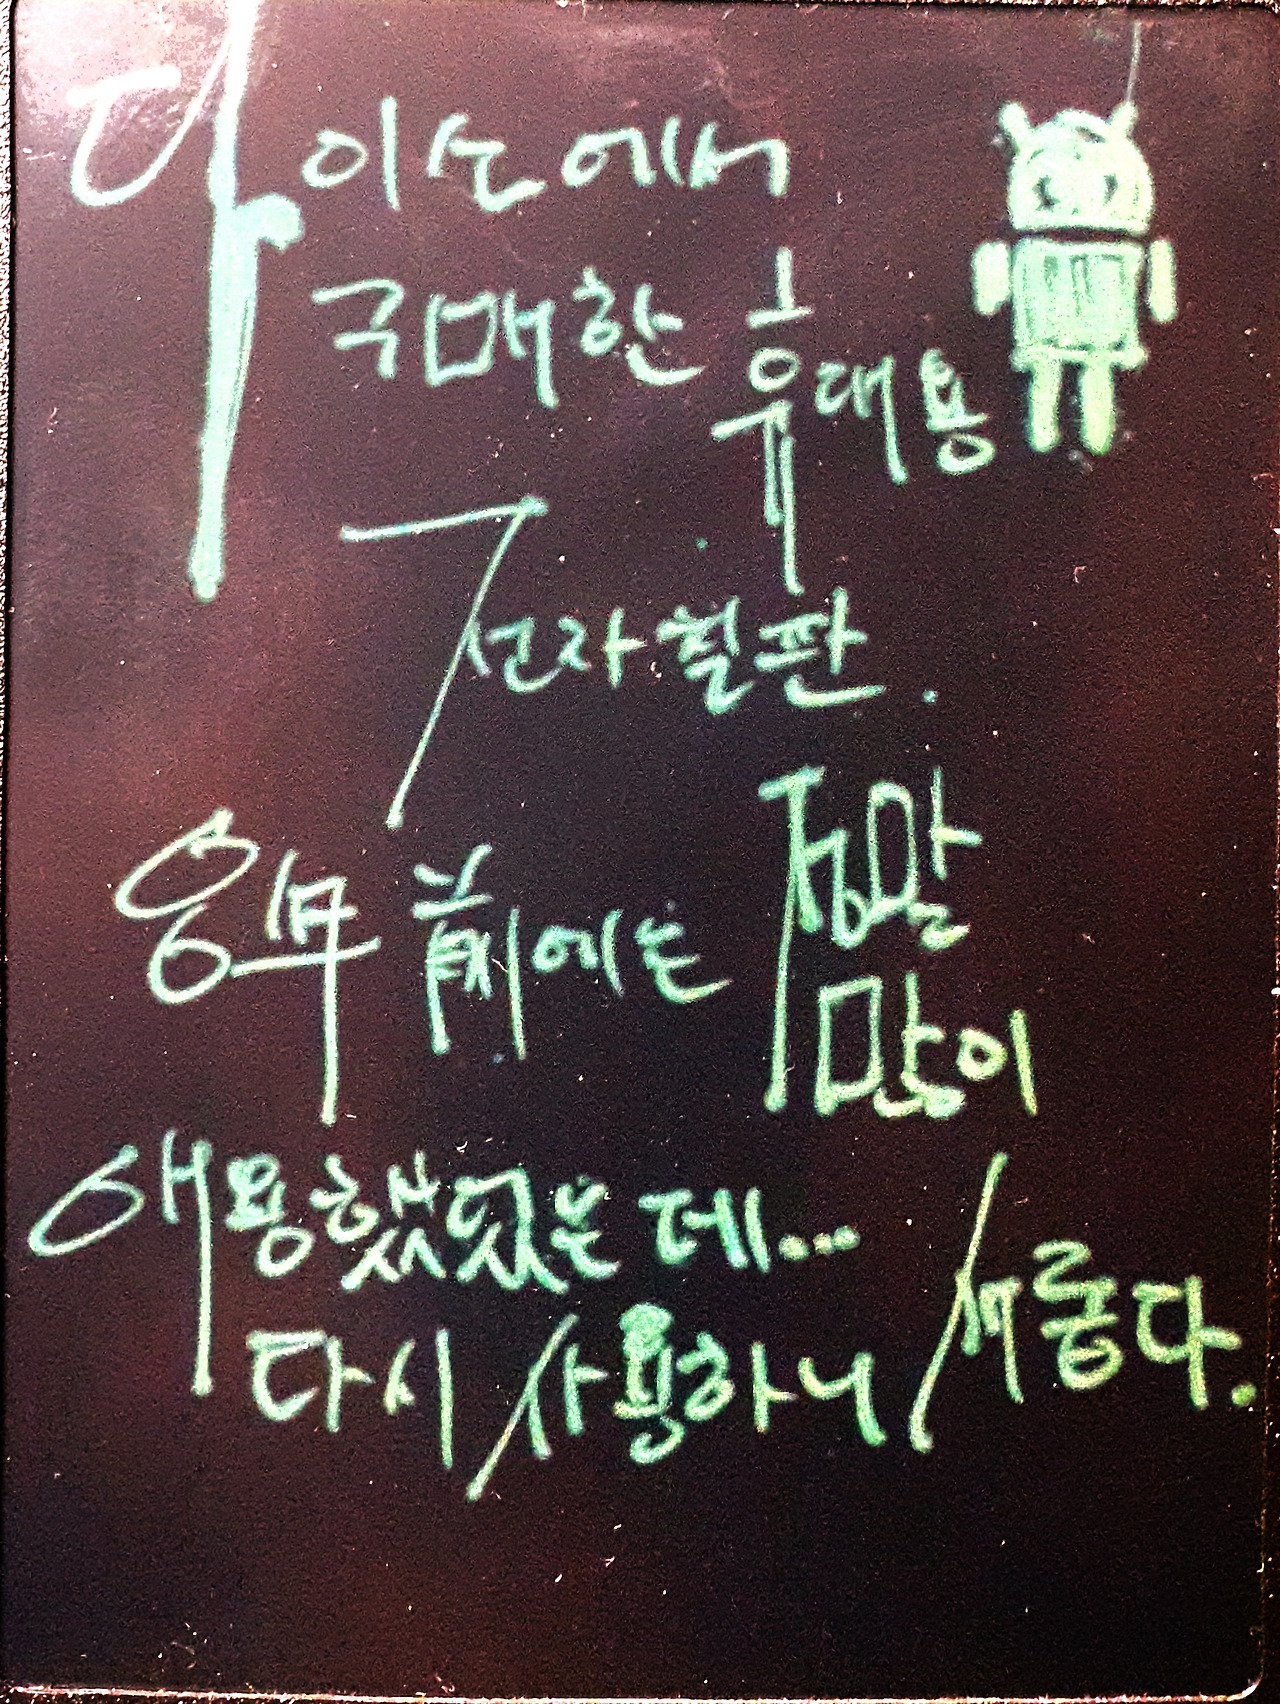 다이소에서
구매한 휴대용
전자칠판.
8年 前에는 정말
많이
애용했었는데...
다시 사용하니 새롭다.